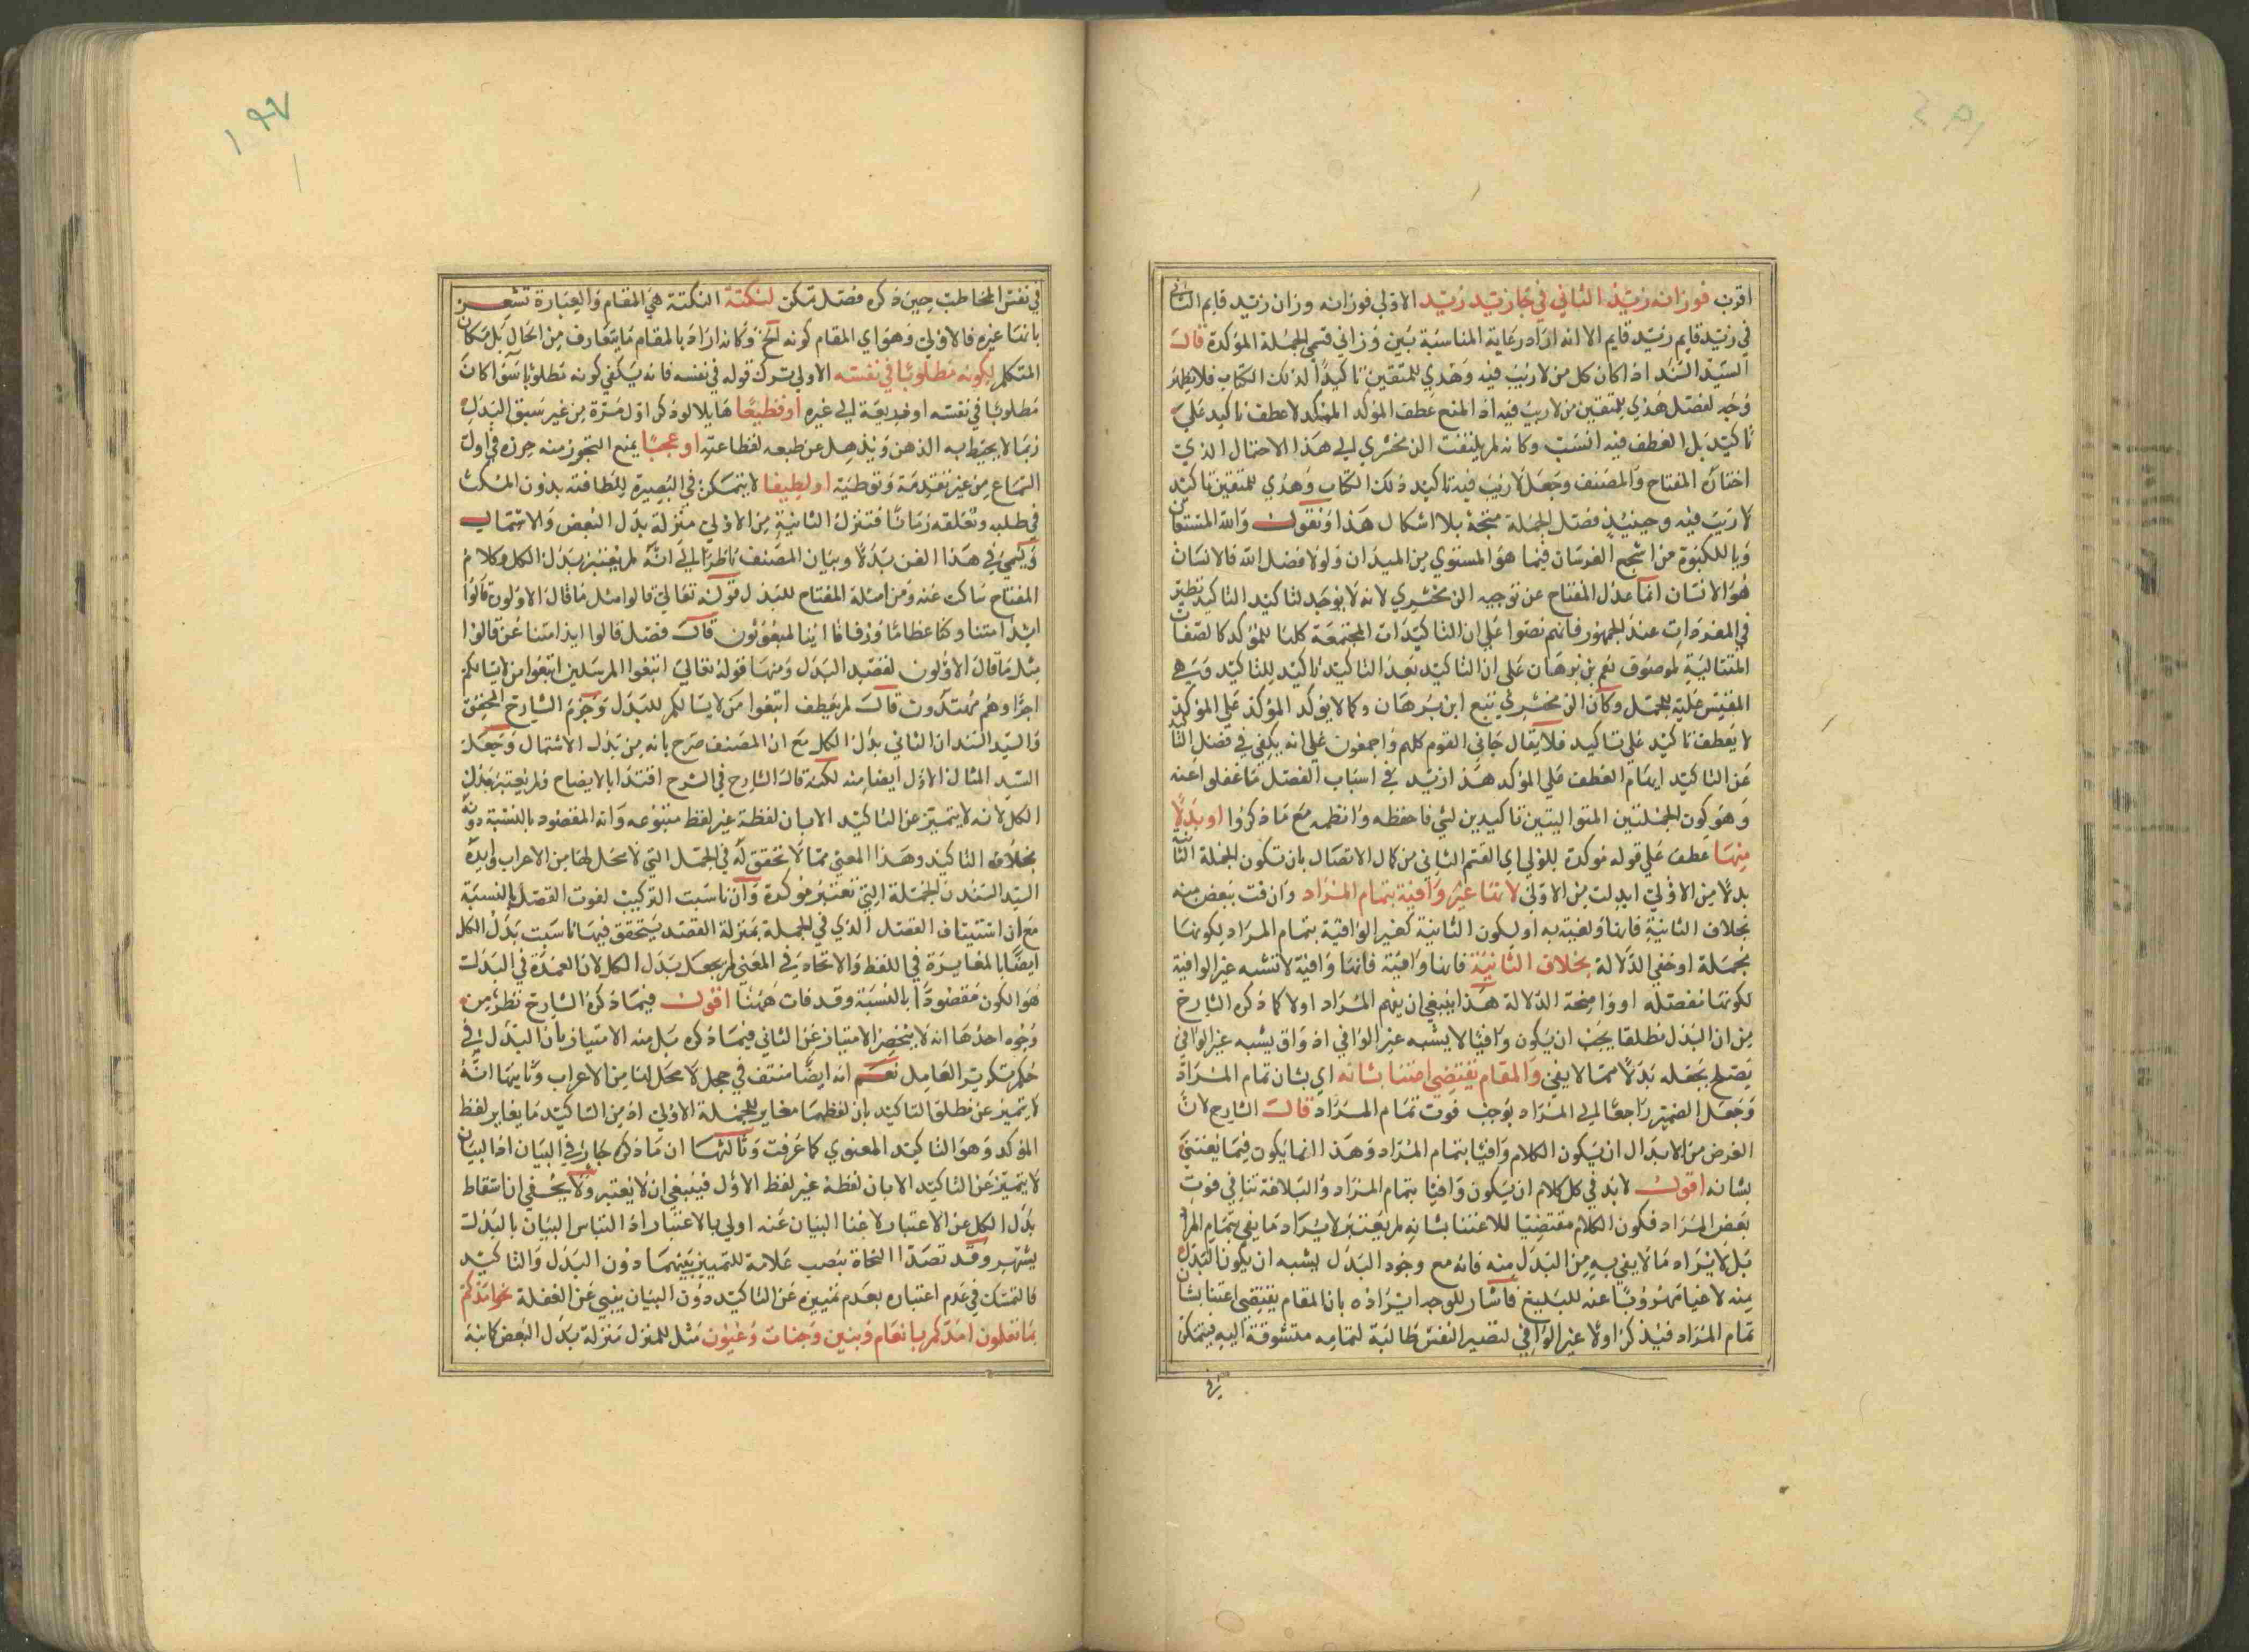 اقرب فوزانه زيد الثاني في جا زيد زيد الاولي فوزانه وزان زيد قايم الثاني
في زيد قايم زيد قايم الا انه اراد رعاية المناسبة بين وزاني قسمي الجملة المؤكدة قال
السيد السند اذا كان كل من لا ريب فيه وهدي للمتقين تاكيدا لذلك الكتاب فلا يظهر
وجه لفصل هدي للمتقين من لا ريب فيه اذ المنع عطف المؤكد المؤكد لا عطف تاكيد علي
تاكيد بل العطف فيه انسب وكانه لم يلتفت الزمخشري الي هذا الاحتمال الذي
اختاره المفتاح والمصنف وجعل لا ريب فيه تاكيد ذلك الكتاب وهدي للمتقين تاكيد
لا ريب فيه وحينيذ فصل الجملة متجه بلا اشكال هذا ونقول والله المستعان
ويا للكبوة من اشجع الفرسان فيما هو المستوي من الميدان ولولا فضل الله فالانسان
هو الانسان انما عدل المفتاح عن توجيه الزمخشري لانه لا يوجد لتاكيد التاكيد نظير
في المفردات عند الجمهور فانهم نصوا علي ان التاكيدات المجتمعة كلها للمؤكد كالصفات
المتتالية لموصوف نعم بن برهان علي ان التاكيد بعد التاكيد تاكيد للتاكيد وهي
المقيس عليه للجمل وكان الزمخشري تبع ابن برهان وكما لا يؤكد المؤكد علي المؤكد
لا يعطف تاكيد علي تاكيد فلا يقال جاني القوم كلهم واجمعون علي انه يكفي في فصل الثاني
عن التاكيد ايهام العطف علي المؤكد هذا زيد في اسباب الفصل ما غفلوا عنه
وهو كون الجملتين المتواليتين تاكيدين لشي فاحفظه وانظمه مع ما ذكروا او بدلا
منها عطف علي قوله موكدة للاولي اي القسم الثاني من كمال الاتصال بان تكون الجملة الثانية
بدلا من الاولي ابدلت من الاولي لانها غير وافية بتمام المراد وان فت ببعض منه
بخلاف الثانية فانها وفية به او لكون الثانية كغير الوافية بتمام المراد لكونها
مجملة او خفي الدلالة بخلاف الثانية فانها وافية فانها وافية لا تشبه غير الوافية
لكونها مفصله او واضحة الدلالة هذا ينبغي ان يفهم المراد اولا كما ذكره الشارح
من ان البدل مطلقا يجب ان يكون وافيا لا يشبه غير الوافي اذ واف يشبه غير الوافي
يصلح بجعله بدلا مما لا يفي والمقام يقتضي اعتنا بشانه اي بشان تمام المراد
وجعل الضمير راجعا الي المراد يوجب فوت تمام المراد قال الشارح لان
الغرض من الابدال ان يكون الكلام وافيا بتمام المراد وهذا انما يكون فيما يعتني
بشانه اقول لا بد في كل كلام ان يكون وافيا بتمام المراد والبلاغة تنافي فوت
بعض المراد فكون الكلام مقتضيا للاعتنا بشانه لم يعتبر لايراد ما يفي بتمام المراد
بل لايراد ما لا يفي به من البدل منه فانه مع وجود البدل يشبه ان يكون البدل
منه لاغيا مهروبا عنه للبليغ فاشار للوجه ايراده بان المقام يقتضي اعتنا بشان
تمام المراد فيذكر اولا غير الوافي لتصير النفس طالبة لتمامه متشوقة اليه فيتمكن
في
١٩٧
في نفس المخاطب حين ذكره فضل تمكن لنكتة النكتة هي المقام والعبارة تشعر
بانها غيره فالاولي وهو اي المقام كونه الخ وكانه اراد بالمقام ما يتعارف من الحال بل مكان
المتكلم لكونه مطلوبا في نفسه الاولي ترك قوله في نفسه فانه يكفي كونه مطلوبا سوا كان
مطلوبا في نفسه او خديعة الي غيره او فظيعا هايلا لو ذكر اول مرة من غير سبق البدل
ربما لا يحيط به الذهن ويذهل عن طبعه لفظاعته او عجبا يمنع التجوز منه حرزه في اول
السماع من غير تقدمة وتوطية او لطيفا لا يتمكن في البصيرة للطافته بدون المكث
في طلبه وتعلقه زمانا فتنزل الثانية من الاولي منزلة بدل البعض والاشتمال
ويسمي في هذا الفن بدلا وبيان المصنف ناظر الي انه لم يعتبر بدل الكل وكلام
المفتاح ساكت عنه ومن امثلة المفتاح للبدل قوله تعالي قالوا مثل ما قال الاولون قالوا
ايذا متنا وكنا عظاما ورفاتا اينا لمبعوثون قال فصل قالوا ايذا متنا عن قالوا
مثل ما قال الاولون لقصد البدل ومنها قوله تعالي اتبعوا المرسلين اتبعوا من لا يسالكم
اجرا وهم مهتدون قال لم يعطف اتبعوا من لا يسالكم للبدل وجزم الشارح المحقق
والسيد السند ان الثاني بدل الكل مع ان المصنف صرح بانه من بدل الاشتمال وجعل
السيد المثال الاول ايضا منه لكنه قال الشارح في الشرح اقتدا بالايضاح ولم يعتبر بدل
الكل لانه لا يتميز عن التاكيد الا بان لفظه غير لفظ متبوعه وانه المقصود بالنسبة دونه
بخلاف التاكيد وهذا المعني مما لا تحقق له في الجمل التي لا محل لها من الاعراب وايده
السيد السند بان الجملة التي تعتبر مؤكدة وان ناسبت التركيب لفوت القصد بالنسبة
مع ان استيناف القصد الذي في الجملة بمنزلة القصد يتحقق فيها ناسبت بدل الكل
ايضا بالمغايرة في اللفظ والاتحاد في المعني لم يجعل بدل الكل لان العمدة في البدل
هو الكون مقصودا بالنسبة وقد فات ههنا اقول فيما ذكره الشارح نظر من
وجوه احدها انه لا ينحصر الامتياز عن الثاني فيما ذكره بل منه الامتياز بان البدل في
حكم تكرير العامل نعم انه ايضا منتف في جمل لا محل لها من الاعراب وثانيها انه
لا يتميز عن مطلق التاكيد بان لفظهما مغاير للجملة الاولي اذ من التاكيد ما يغاير لفظ
المؤكد وهو التاكيد المعنوي كما عرفت وثالثها ان ما ذكره جار في البيان اذ البيان
لا يتميز عن التاكيد الا بان لفظه غير لفظ الاول فينبغي ان لا يعتبر ولا يخفي ان اسقاط
بدل الكل عن الاعتبار لاغنا البيان عنه اولي بالاعتبار اذ التباس البيان بالبدل
يشتهر وقد تصدا النحاة بنصب علامة للتمييز بينهما دون البدل والتاكيد
فالتمسك في عدم اعتباره بعدم تمييزه عن التاكيد دون البيان ينبي عن الغفلة نحو امدكم
بما تعلمون امدكم بانعام وبنين وجنات وعيون مثل للمنزل منزلة بدل البعض كاينه